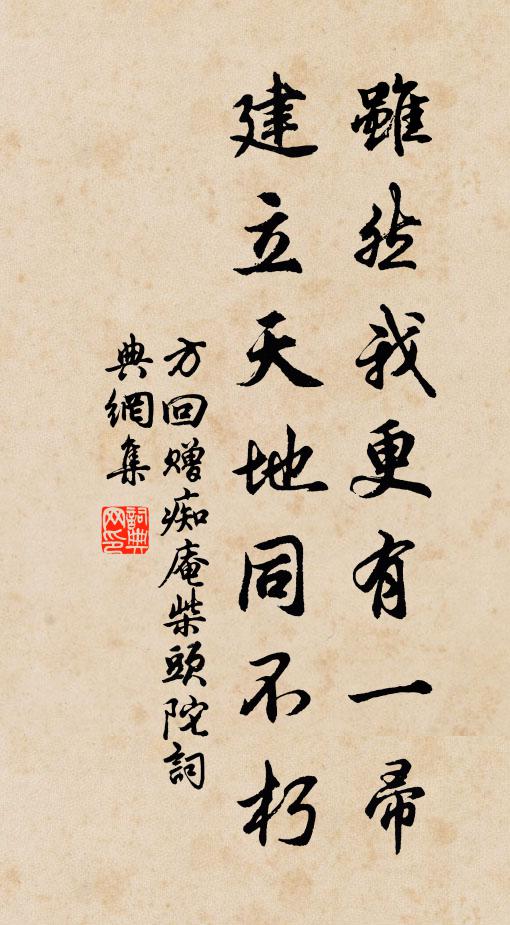 雖然我更有一帚
建立天地同不朽
方回贈痴庵柴頭陀詞
典網集
詞典网印